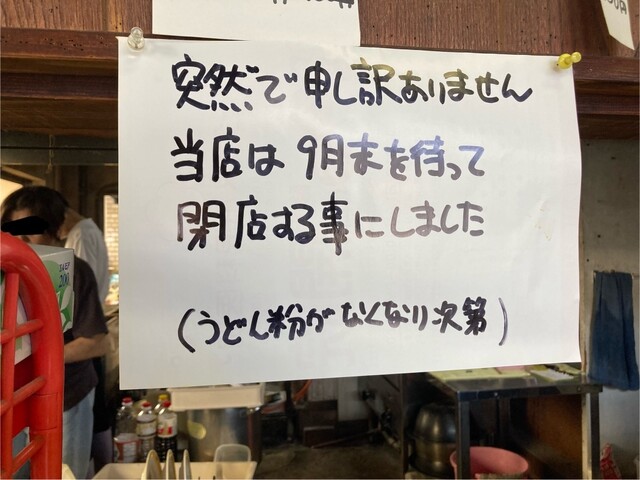 突然で申し訳ありません
当店は9月末を待って
閉店する事にしました
(うどん粉がなくなり次第)
200